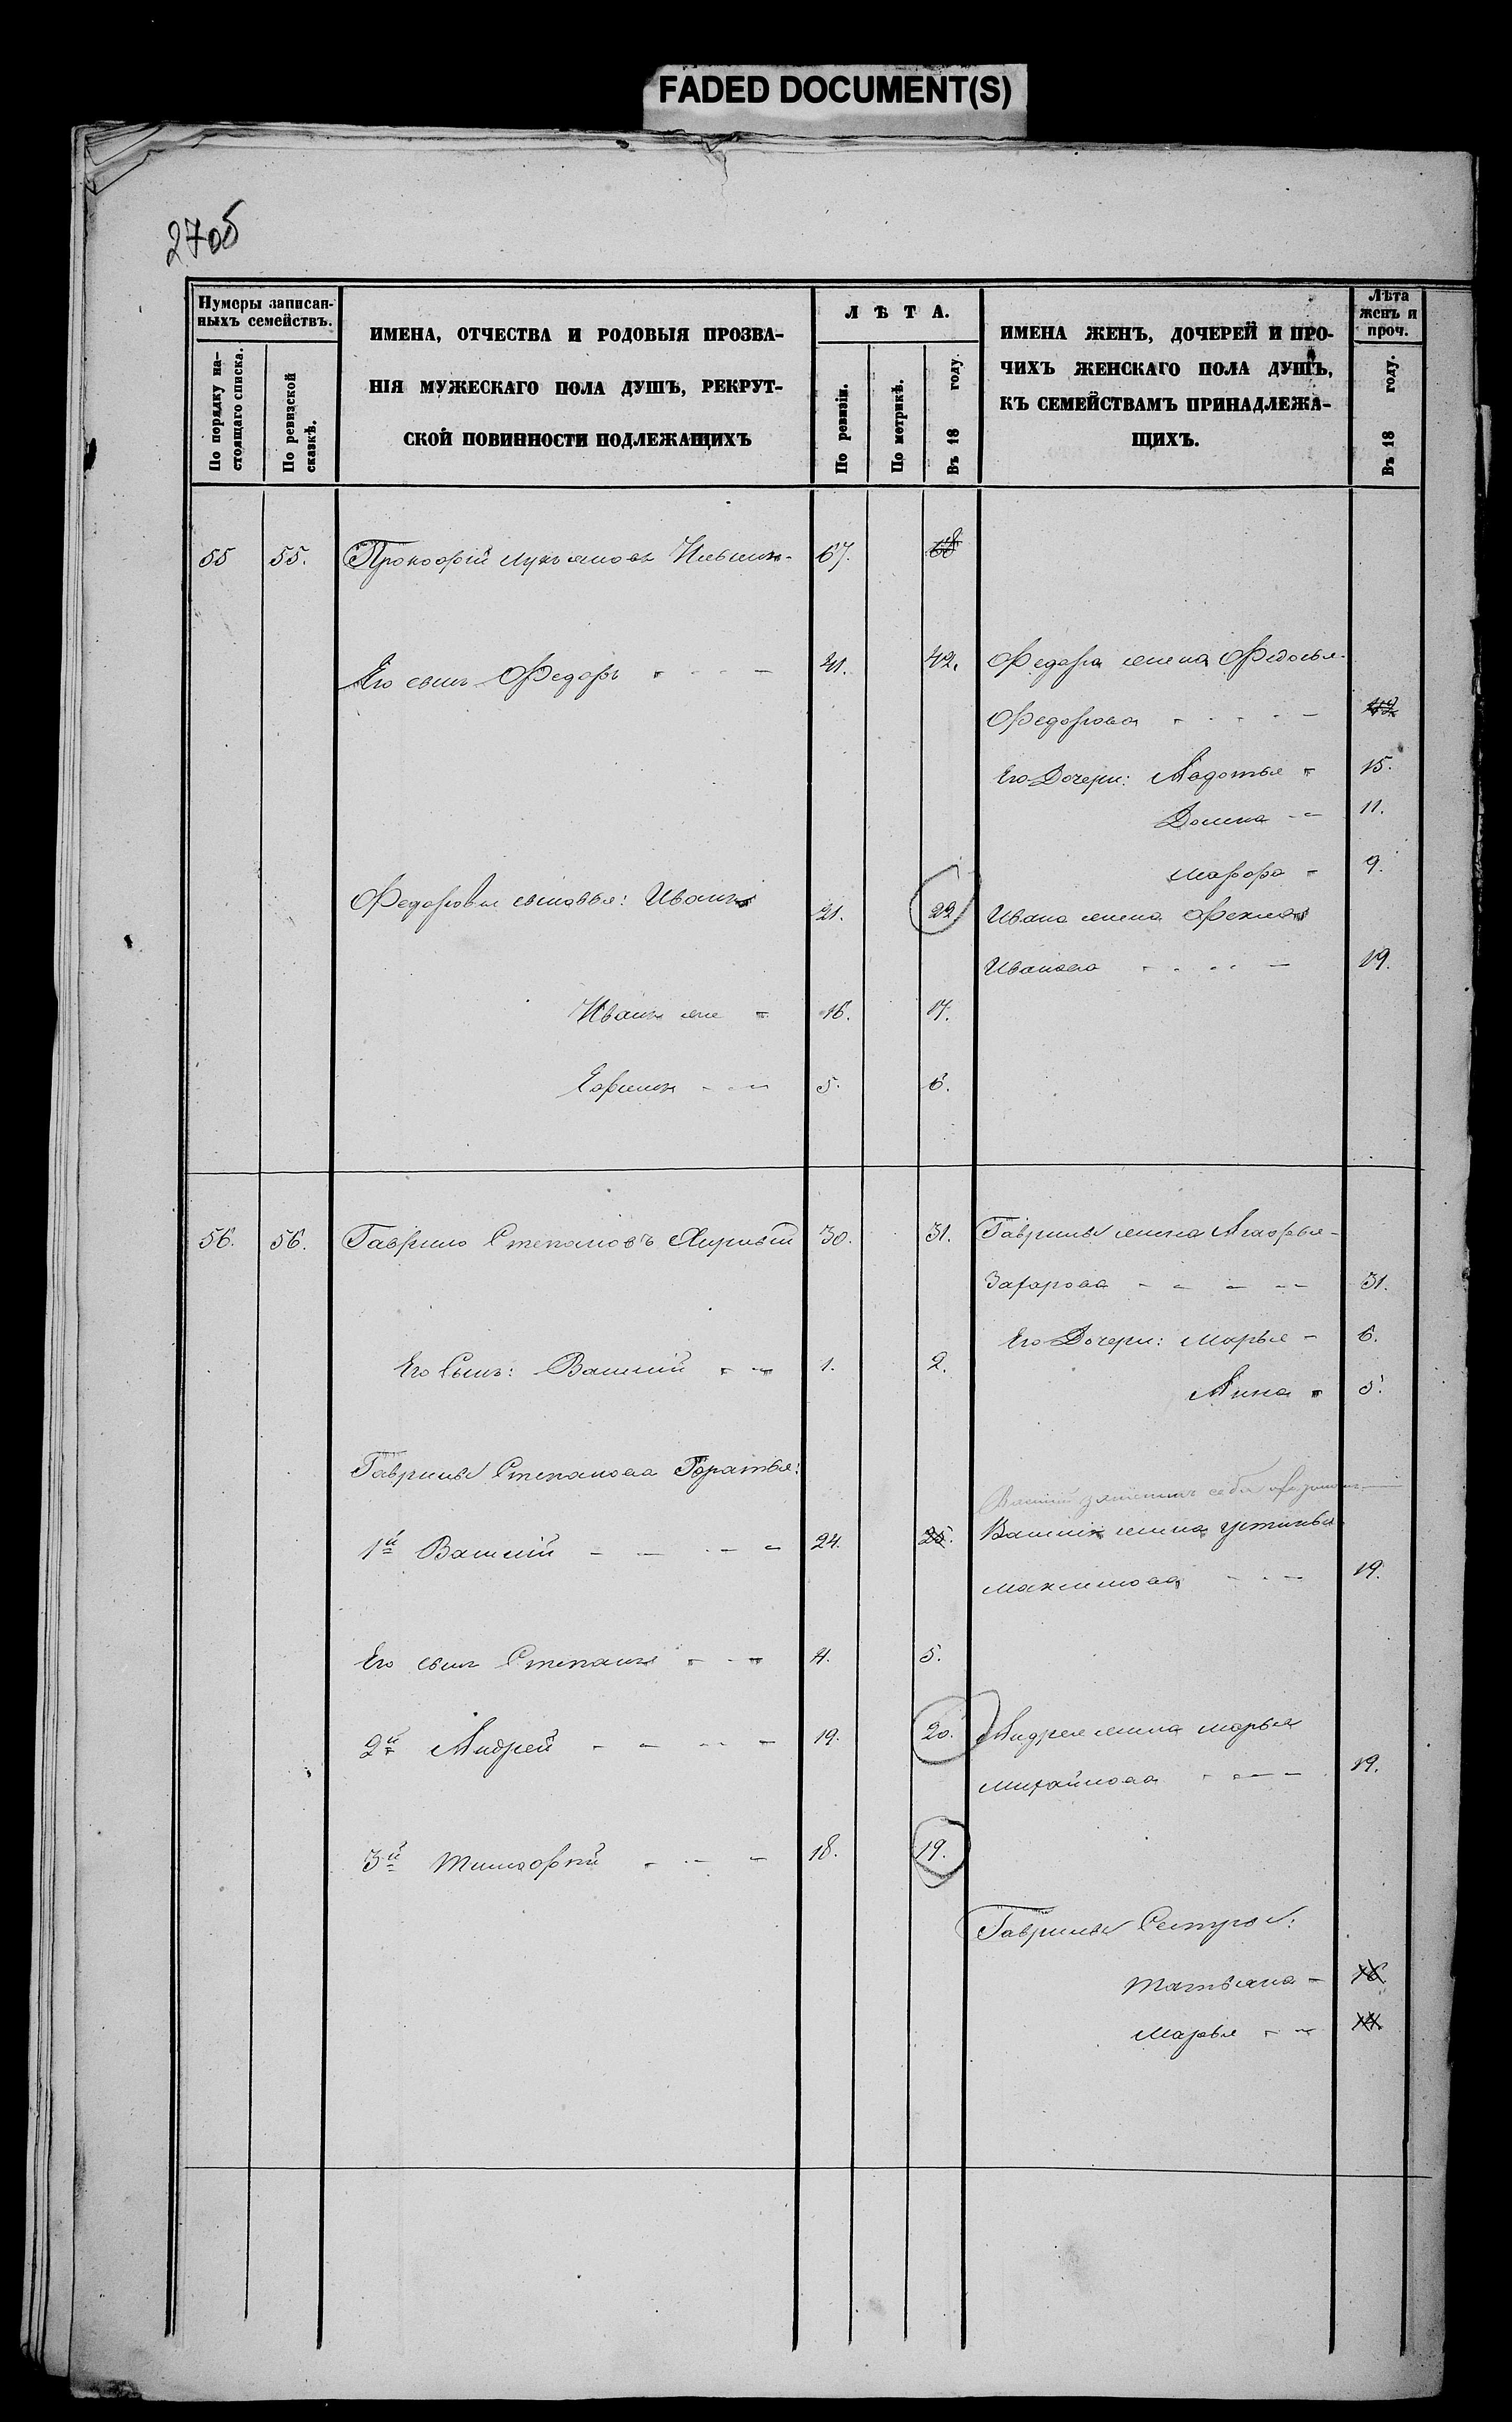 FADED DOCUMENT(S)
270б
Нумеры записан-
ныхъ семействъ.
По порядку на-
стоящаго списка.
По ревизской
сказкѣ.
ИМЕНА, ОТЧЕСТВА И РОДОВЫЯ ПРОЗВА-
НІЯ МУЖЕСКАГО ПОЛА ДУШЪ, РЕКРУТ-
СКОЙ ПОВИННОСТИ ПОДЛЕЖАЩИХЪ
ЛѢТА.
По ревизіи.
По метрикѣ.
Въ 18 году.
ИМЕНА ЖЕНЪ, ДОЧЕРЕЙ И ПРО-
ЧИХЪ ЖЕНСКАГО ПОЛА ДУШЪ,
КЪ СЕМЕЙСТВАМЪ ПРИНАДЛЕЖА-
ЩИХЪ.
Лѣта
женъ и
проч.
Въ 18 году.
55 55. Прокофій Лукьяновъ Ильинъ 67. 68
Его сынъ Федоръ 41. 42. Федора жена Федосья
Федорова 42.
Его Дочери: Авдотья 15.
Домна 11.
Марфа 9.
Федоровы сыновья: Иванъ 21. 22 Ивана жена Фекла
Иванова 19.
Иванъ же 16. 17.
Ефимъ 5. 6.
56. 56. Гаврило Степановъ 30. 31. Гаврилы жена Агафья
Захарова 31.
Его Дочери: Марья 6.
Его Сынъ: Василій 1. 2.
Анна 5.
Гаврилы Степанова братья:
Василій себя
1й Василій 24. 25. Василія жена Устинья
Максимова 19.
Его сынъ Степанъ 4. 5.
2й Андрей 19. 20. Андрея жена Марья
Михайлова 19.
3й Тимофей 18. 19.
Гаврилы Сестры:
Татьяна 16.
Марья 14.